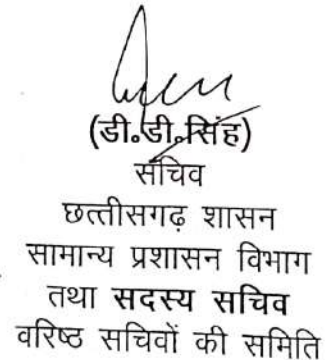 (डी.डी.सिंह)
सचिव
छत्तीसगढ़ शासन
सामान्य प्रशासन विभाग
तथा सदस्य सचिव
वरिष्ठ सचिवों की समिति